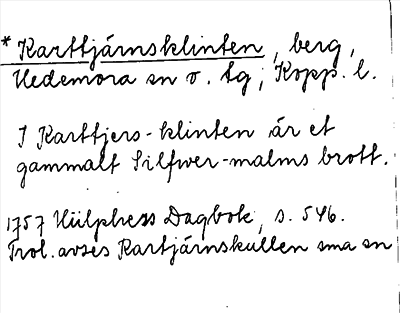 * Karttjärnsklinten, berg,
Hedemora sn o. tg, Kopp. l.
I Karttjers-klinten är et
gammalt Silfwer-malms brott.
1757 Hülphers Dagbok, s. 546.
Trol. avses Kartjärnskullen sma sn